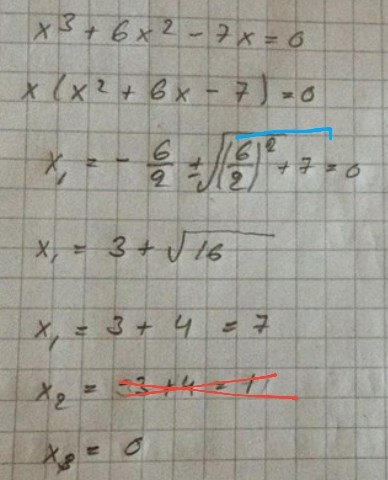 x³ + 6x² - 7x = 0
x (x² + 6x - 7) = 0
x₁ = - 6/2 ± √(6/2)² + 7 = 0
x₁ = 3 + √16
x₁ = 3 + 4 = 7
x₂ = -3 + 4 = 1
x₃ = 0